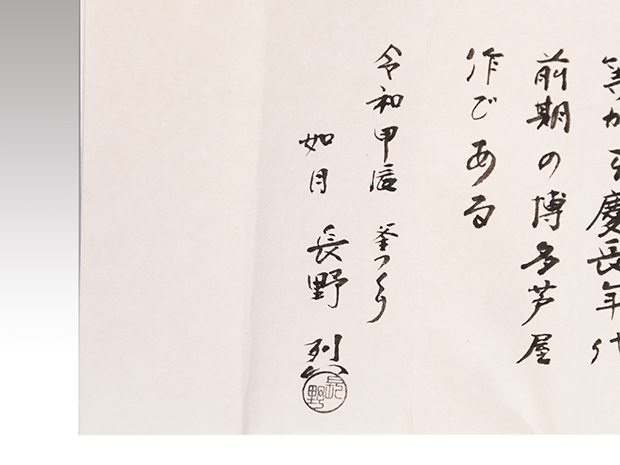 等から慶長年代
前期の博多芦屋
作である
令和甲辰 釜つくり
如月 長野 烈
長野